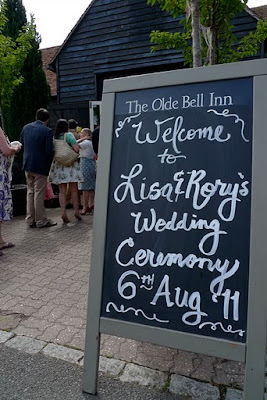 The Olde Bell Inn
Welcome
to
Lisa & Rory's
Wedding
Ceremony
6TH Aug '11